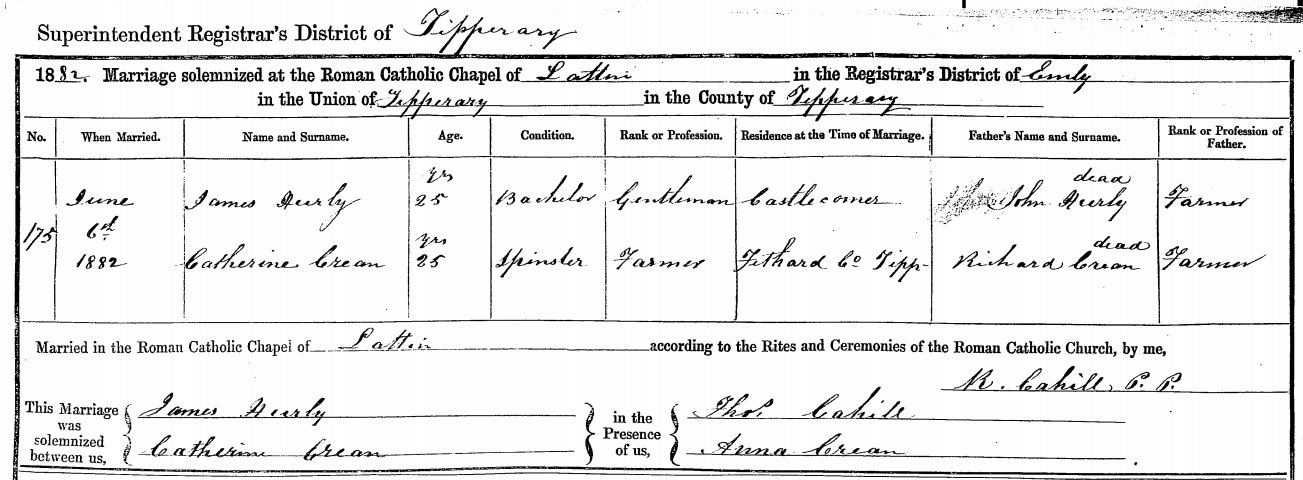 Superintendent Registrar's District of Tipperary
1882. Marriage solemnized at the Roman Catholic Chapel of Lattin in the Registrar's District of Emly
in the Union of Tipperary in the County of Tipperary
No. When Married. Name and Surname. Age. Condition. Rank or Profession. Residence at the Time of Marriage. Father's Name and Surname. Rank or Profession of Father.
yrs dead
June James Hurly 25 Bachelor Gentleman Castlecomer John Hurly Farmer
175 6th yrs dead
1882 Catherine Crean 25 Spinster Farmer Fethard Co Tipp- Richard Crean Farmer
Married in the Roman Catholic Chapel of Lattin according to the Rites and Ceremonies of the Roman Catholic Church, by me,
R. Cahill, P. P.
This Marriage was solemnized between us, James Hurly in the Presence of us, Thos. Cahill
Catherine Crean Anna Crean